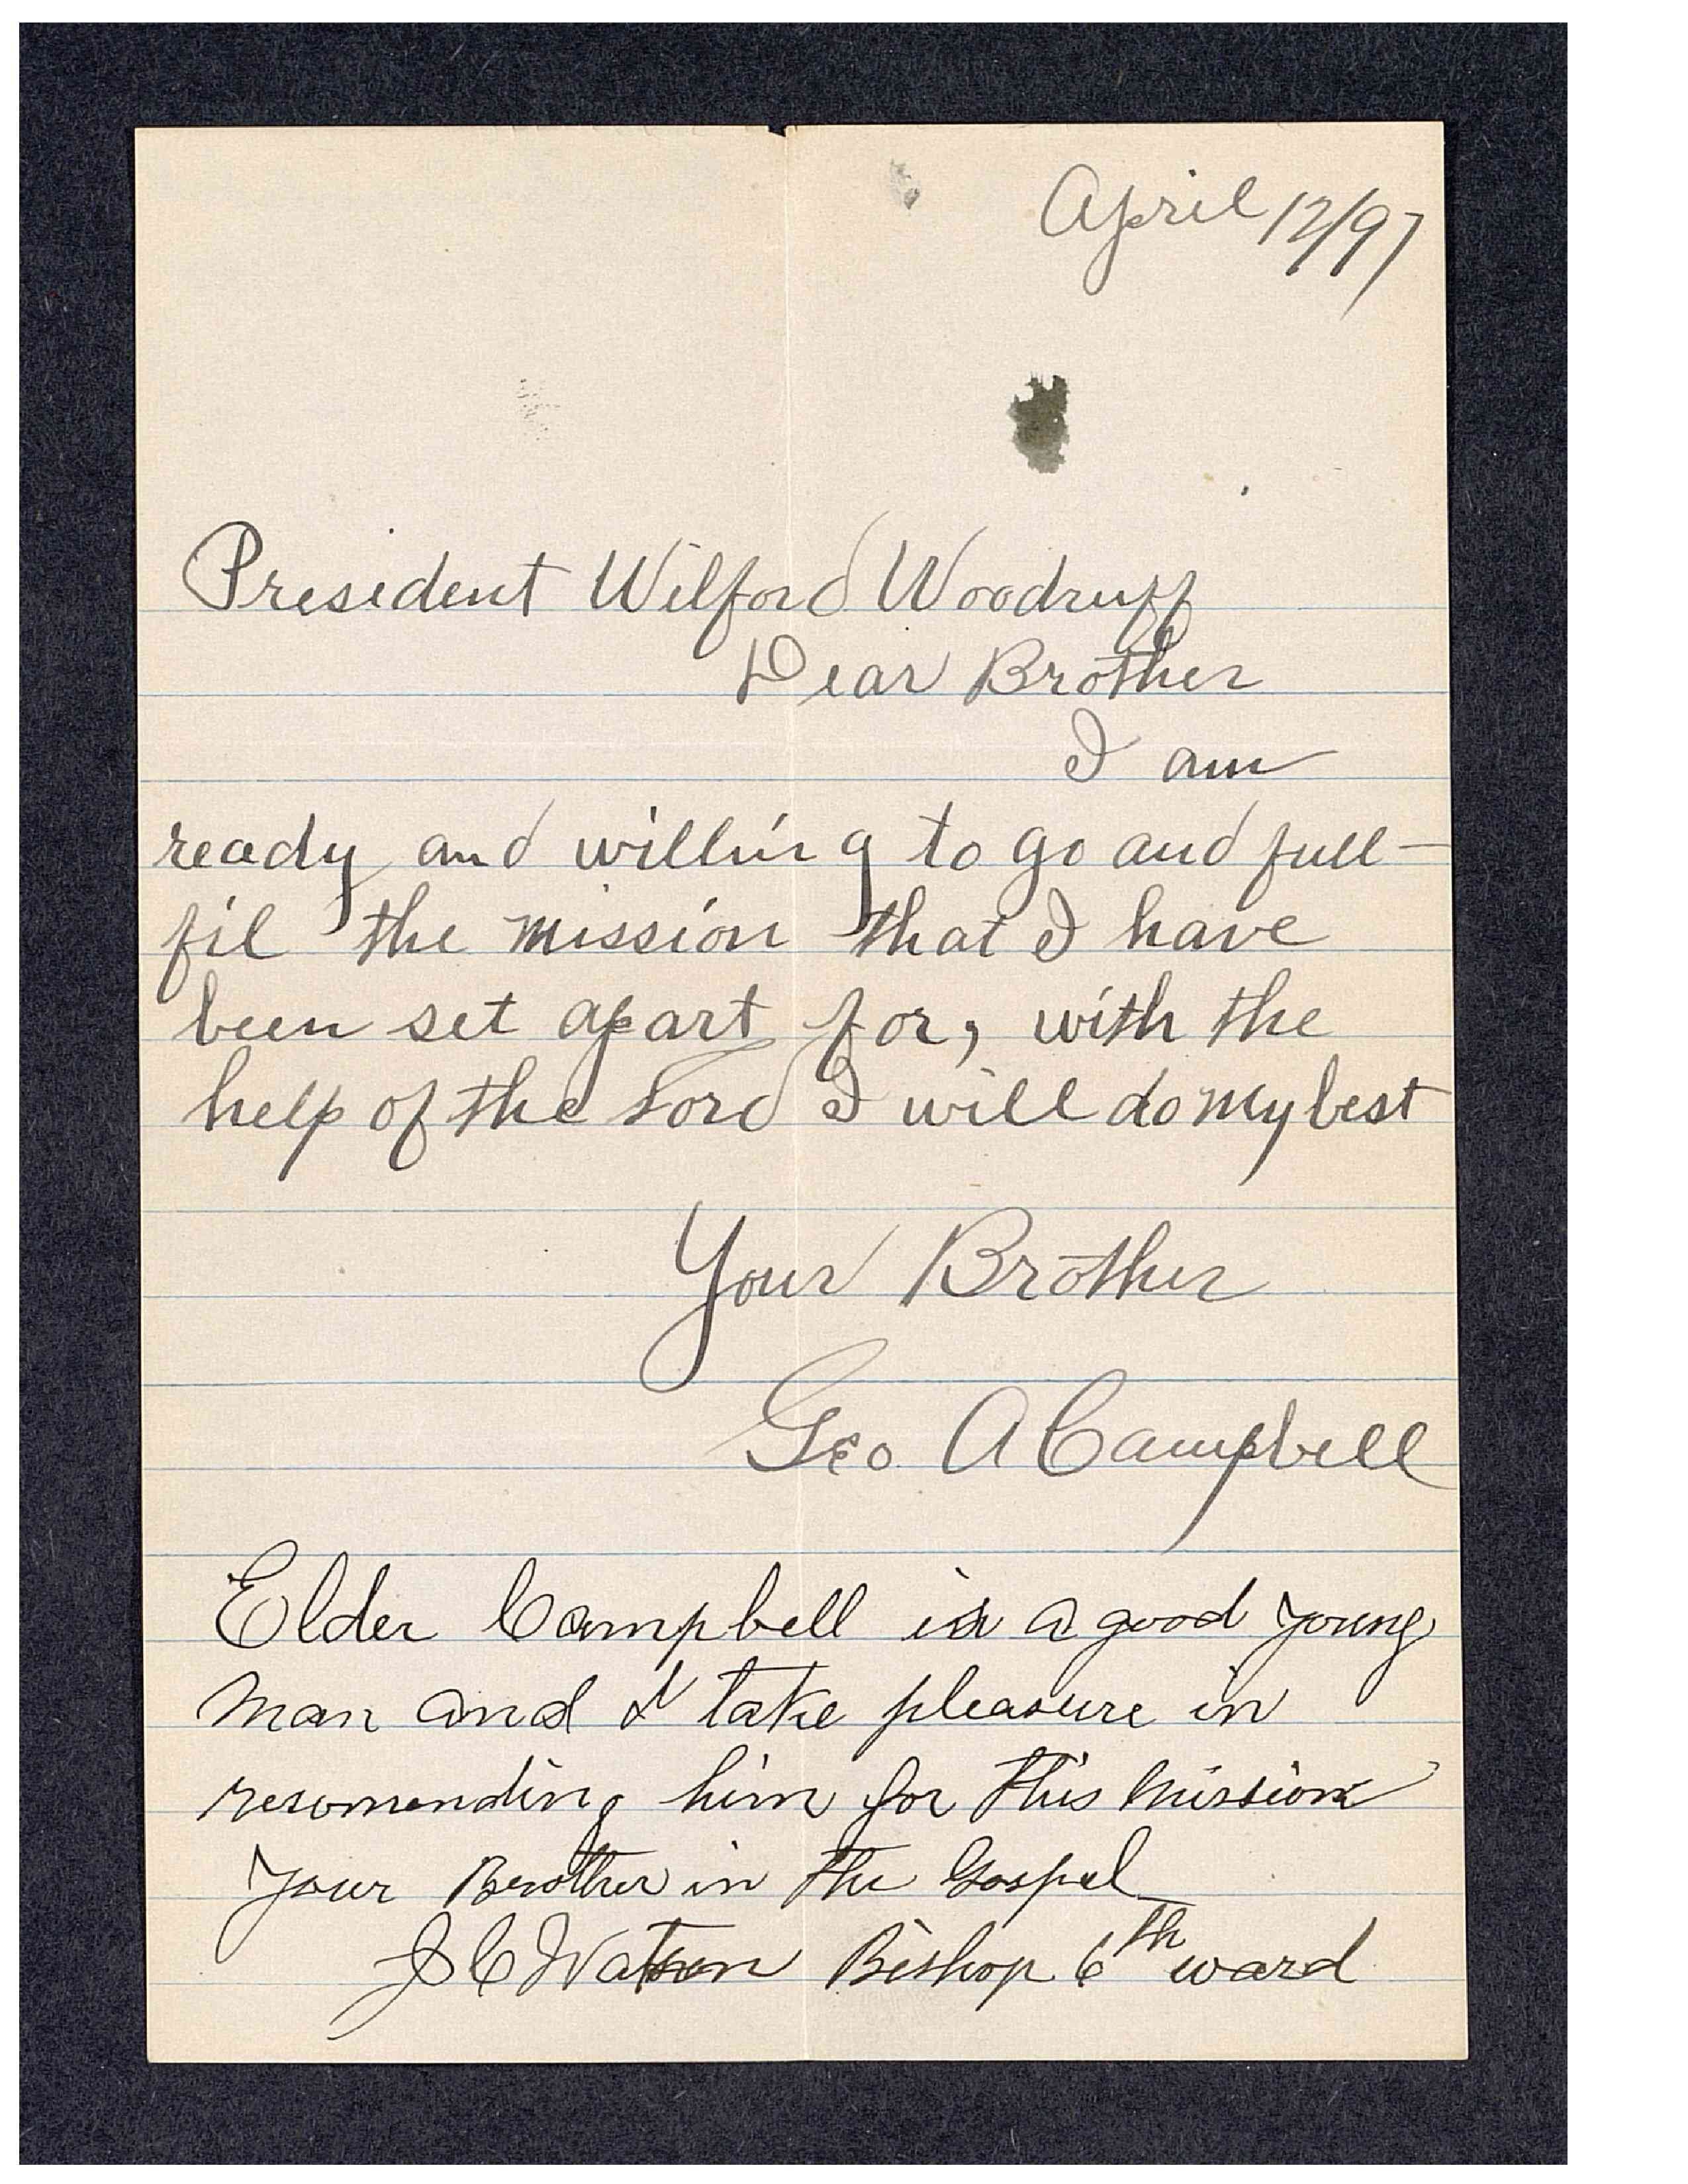 April 12/97
President Wilford Woodruff
Dear Brother
I am
ready and willing to go and full-
fil the mission that I have
been set apart for, with the
help of the Lord I will do my best
Your Brother
Geo. A Campbell
Elder Campbell is a good young
man and I take pleasure in
recomending him for this mission
Your Brother in the Gospel
J C Watson Bishop 6th ward